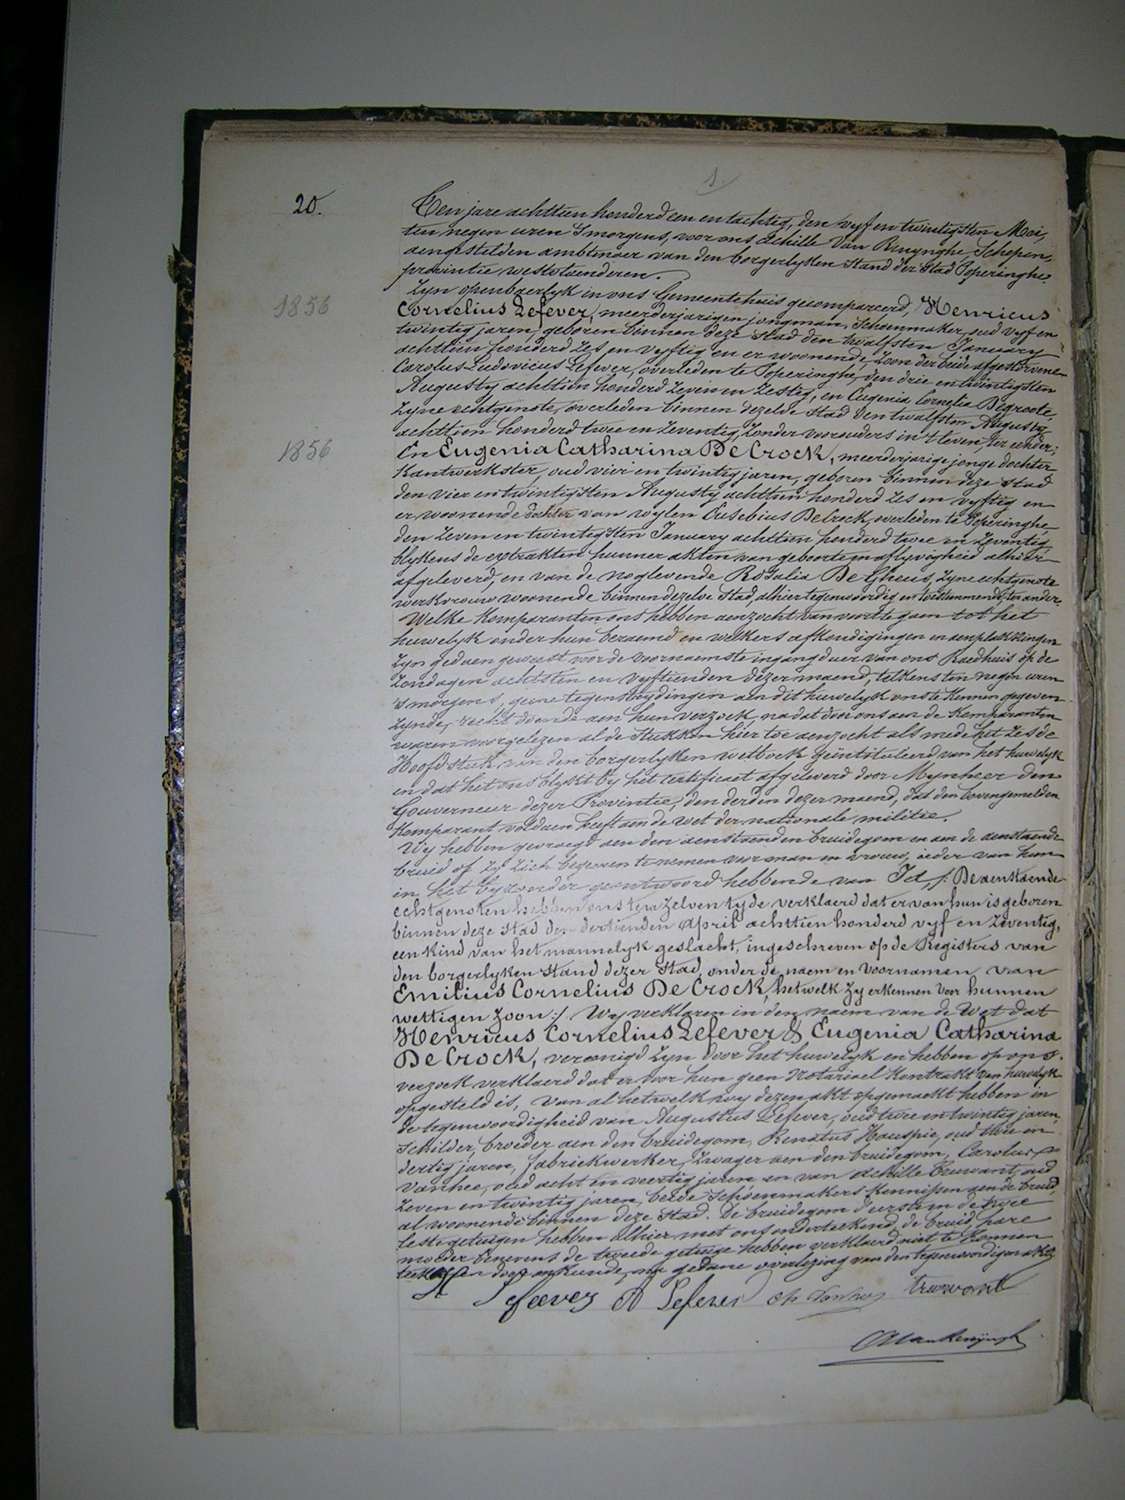 1.
20.
Ten jare achttien honderd een en tachtig, den vyf en twintigsten Mei,
ten negen uren 'smorgens, voor ons Achille Van Renynghe Schepen,
aengestelden ambtenaer van den borgerlyken Stand der Stad Poperinghe
provintie westvlaenderen.
Zyn openbaerlyk in ons Gemeentehuis gecompareerd, Henricus
1856
Cornelius Lefever, meerderjarigen jongman, Schoenmaker, oud vyf en
twintig jaren, geboren binnen deze stad den twalfsten January
achttien honderd zes en vyftig en er woonende, zoon der beide afgestorvene
Carolus Ludovicus Lefever, overleden te Poperinghe, den drie en twintigsten
Augusty achttien honderd zeven en zestig, en Eugenia Cornelia Degroote,
zyne echtgenote, overleden binnen dezelve stad den twalfsten Augusty
achttien honderd twee en zeventig, zonder voorouders in 't leven, ter eender;
1856
En Eugenia Catharina De Crock, meerderjarige jonge dochter
Kantwerkster, oud vier en twintig jaren, geboren binnen deze stad
den vier en twintigsten Augusty achttien honderd zes en vyftig en
er woonende dochter van wylen Eusebius De Crock, overleden te Poperinghe
den zeven en twintigsten January achttien honderd twee en zeventig
blykens de extrakten hunner akten van geboorte en aflyvigheid alhier
afgeleverd, en van de noglevende Rosalia De Gheus, zyne echtgenote
werkvrouw woonende binnen dezelve Stad, alhier tegenwoordig en toestemmende, ter ander.
Welke komparanten ons hebben aenzocht van voort te gaen tot het
huwelyk onder hun beraemd en welkers afkondigingen en aenplakkingen
zyn gedaen geweest voor de voornaemste ingangdeur van ons Raedhuis op de
zondagen achtsten en vyftienden dezer maend, telkens ten negen uren
'smorgens, geene tegenstrydingen aen dit huwelyk ons te kennen gegeven
zynde, recht doende aen hun verzoek, na dat door ons aen de komparanten
waren voorgelezen al de stukken hier toe aenzocht als mede het zesde
Hoofdstuk van den borgerlyken wetboek geïntituleerd van het huwelyk
en dat het ons blykt by het certificaet afgeleverd door Mynheer den
Gouverneur dezer Provintie, den derden dezer maend, dat den bovengemelden
Komparant voldaen heeft aen de wet der nationale militie.
Wy hebben gevraegd aen den aenstaenden bruidegom en aen de aenstaende
bruid of zy zich begeeren te nemen voor man en vrouw, ieder van hun
in het byzonder geantwoord hebbende van Ja, /: De aenstaende
echtgenoten hebben ons ten zelven tyde verklaerd dat er van hun is geboren
binnen deze stad den dertienden April achttien honderd vyf en zeventig,
een kind van het mannelyk geslacht, ingeschreven op de Registers van
den borgerlyken stand dezer Stad, onder de naem en voornamen van
Emilius Cornelius De Crock, hetwelk zy erkennen voor hunnen
wettigen zoon :/ Wy verklaren in den naem van de Wet dat
Henricus Cornelius Lefever & Eugenia Catharina
De Crock, vereenigd zyn door het huwelyk en hebben op ons
verzoek verklaerd dat er voor hun geen Notariael kontrakt van huwelyk
opgesteld is, Van al hetwelk wy dezen akt opgemaekt hebben in
de tegenwoordigheid van Augustus Lefever, oud twee en twintig jaren,
schilder, broeder aen den bruidegom, Renatus Hauspie, oud twee en
dertig jaren, fabriekwerker, zwager aen den bruidegom, Carolus
Vanhee, oud acht en veertig jaren en van Achille Truwant, oud
zeven en twintig jaren, beide schoenmakers kennissen aen de bruid,
al woonende binnen deze stad. De bruidegom d'eerste en de twee
leste getuigen hebben alhier met ons onderteekend, de bruid hare
moeder benevens de tweede getuige hebben verklaerd niet te konnen
teekenen door onkunde, na gedane overlezing van den tegenwoordigen akt
H Lefever A Lefever Ch Vanhee truwant
AVanRenynghe